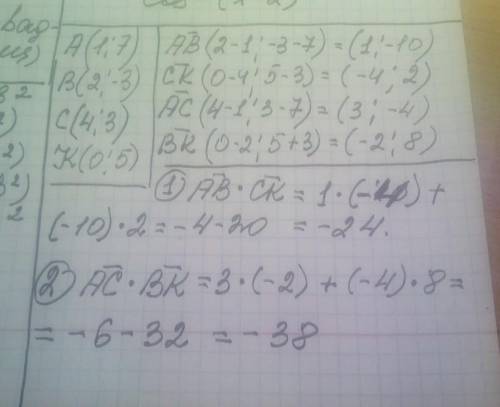 A(1;7)
B(2;-3)
C(4;3)
K(0;5)
AB(2-1;-3-7)=(1;-10)
CK(0-4;5-3)=(-4;2)
AC(4-1;3-7)=(3;-4)
BK(0-2;5+3)=(-2;8)
1) AB·CK = 1·(-4)+
(-10)·2=-4-20 =-24.
2) AC·BK=3·(-2)+(-4)·8=
=-6-32 =-38